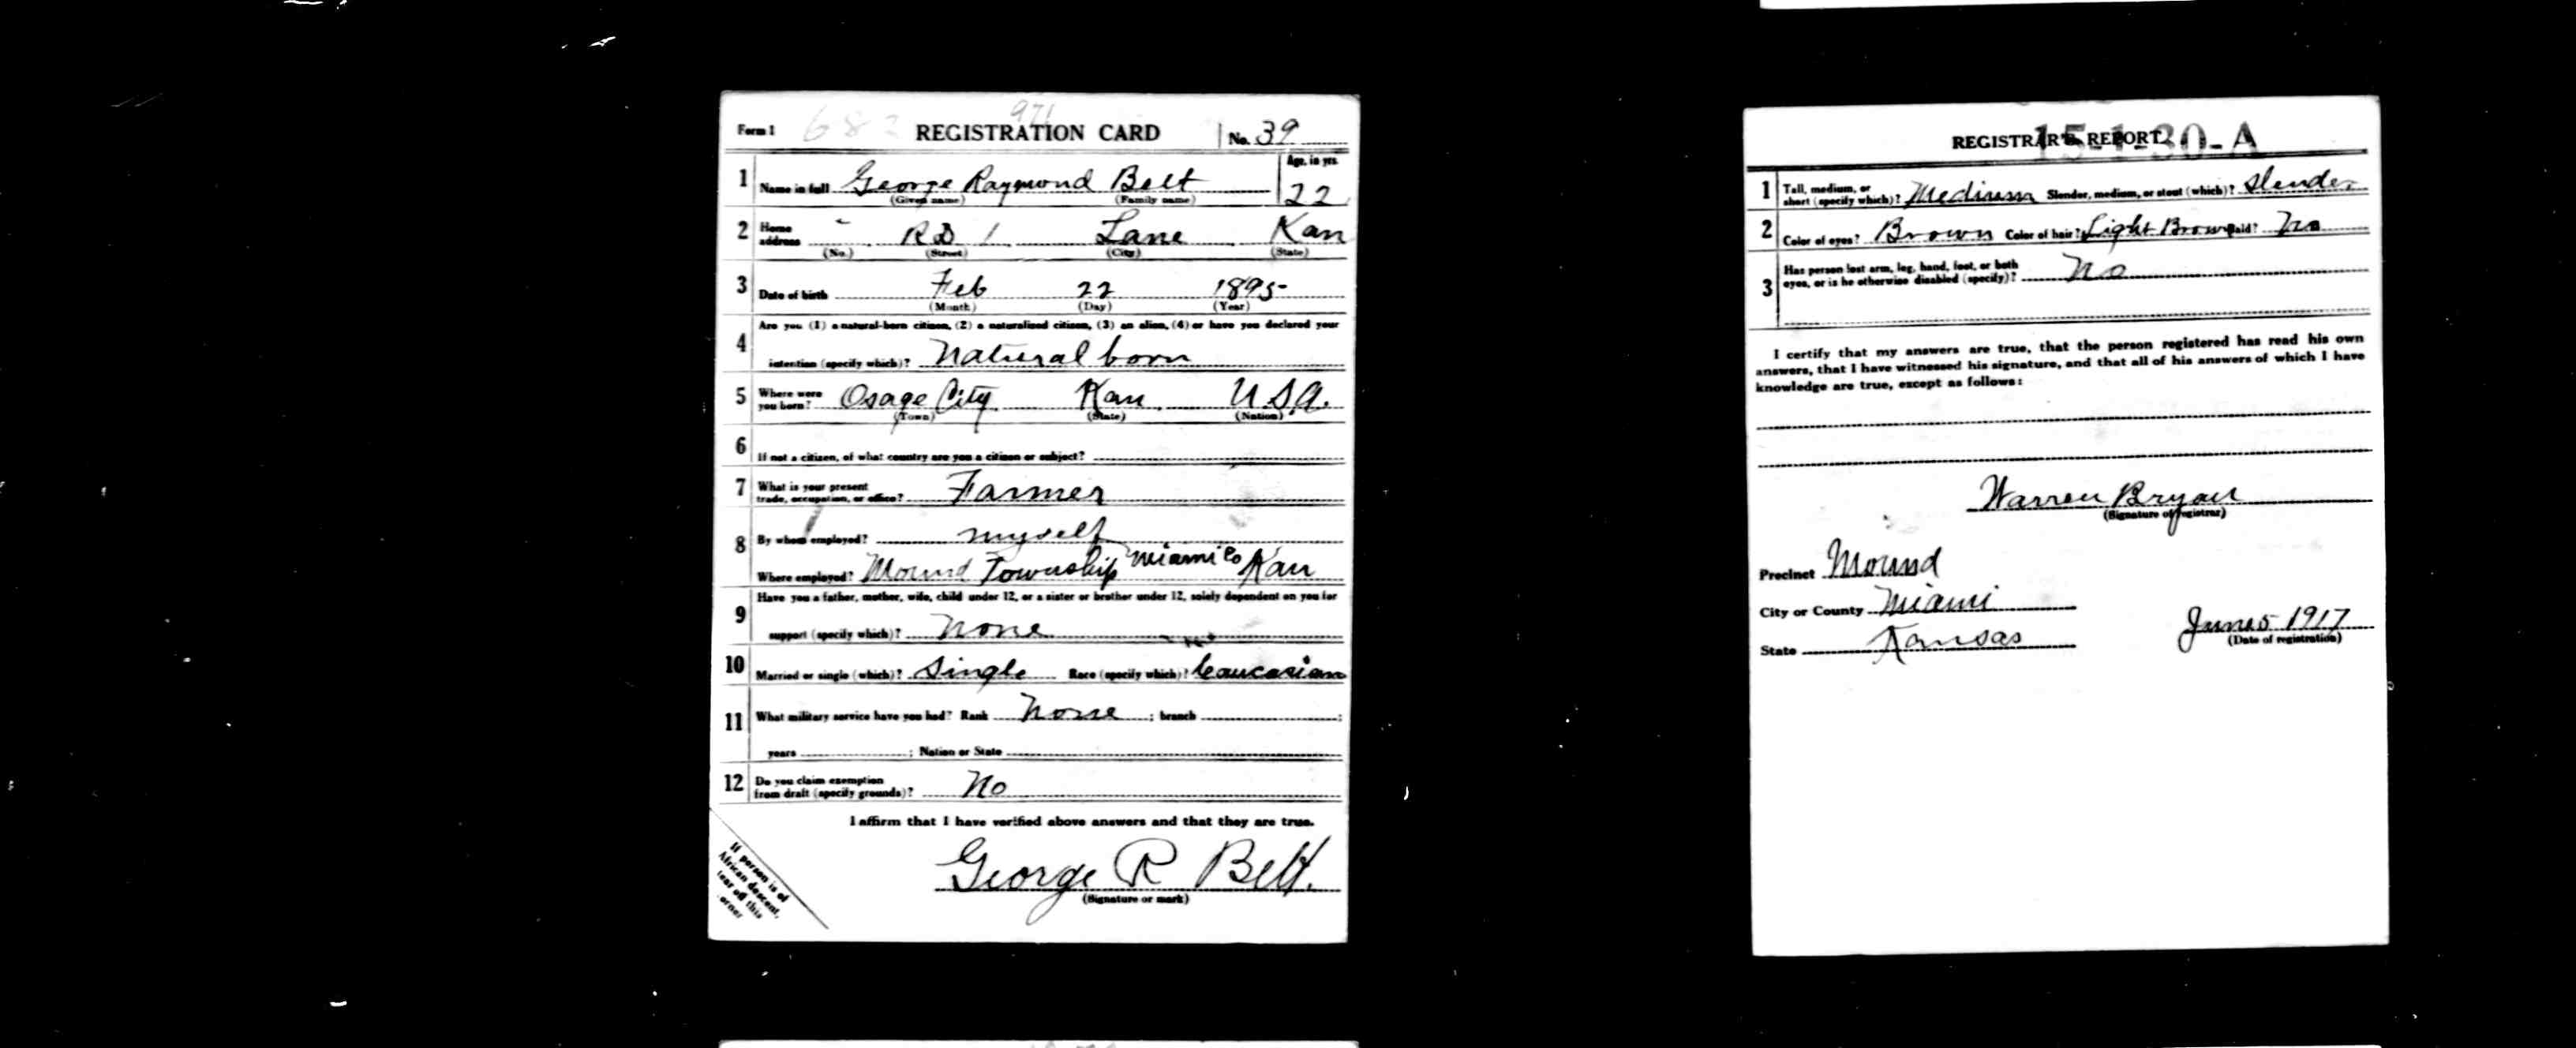 971
Form 1 REGISTRATION CARD No. 39
1 Name in full George Raymond Belt Age, in yrs.
(Given name) (Family name) 22
2 Home address RD 1 Lane Kan
(No.) (Street) (City) (State)
3 Date of birth Feb 22 1895
(Month) (Day) (Year)
4 Are you (1) a natural-born citizen, (2) a naturalized citizen, (3) an alien, (4) or have you declared your
intention (specify which)? Natural born
5 Where were you born? Osage City Kan U.S.A.
(Town) (State) (Nation)
6 If not a citizen, of what country are you a citizen or subject?
7 What is your present trade, occupation, or office? Farmer
8 By whom employed? myself
Where employed? Mound Township Miami Co Kan
9 Have you a father, mother, wife, child under 12, or a sister or brother under 12, solely dependent on you for
support (specify which)? None
10 Married or single (which)? Single Race (specify which)? Caucasian
11 What military service have you had? Rank None ; branch ;
years ; Nation or State
12 Do you claim exemption from draft (specify grounds)? No
I affirm that I have verified above answers and that they are true.
George R Belt.
(Signature or mark)
If person is of
African descent,
tear off this
corner
REGISTRAR'S REPORT
15-1-30-A
1 Tall, medium, or short (specify which)? Medium Slender, medium, or stout (which)? Slender
2 Color of eyes? Brown Color of hair? Light Brown Bald? No
3 Has person lost arm, leg, hand, foot, or both
eyes, or is he otherwise disabled (specify)? No
I certify that my answers are true, that the person registered has read his own
answers, that I have witnessed his signature, and that all of his answers of which I have
knowledge are true, except as follows:
Warren Bryan
(Signature of registrar)
Precinct Mound
City or County Miami
State Kansas
June 5 1917
(Date of registration)